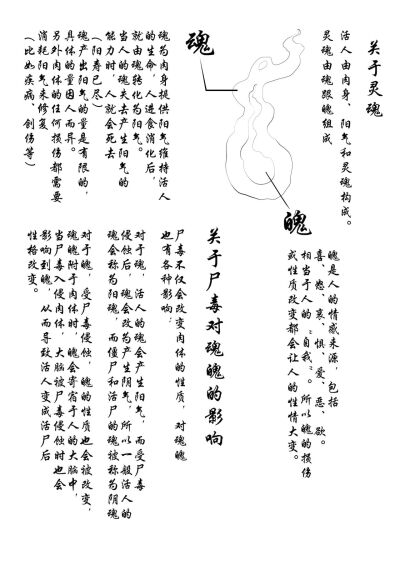 关于灵魂
活人由肉身、阳气和灵魂构成。
灵魂由魂跟魄组成
魂
魂为肉身提供阳气维持活人
的生命，人进食消化后，
就由魂转化为阳气。
当人的魂失去产生阳气的
能力时，人就会死去
（阳寿已尽）
魂产出阳气的量是有限的，
具体的量因人而异。
另外肉体的任何损伤都需要
消耗阳气来修复
（比如疾病、创伤等）
魄
魄是人的情感来源，包括
喜、怒、哀、惧、爱、恶、欲。
相当于人的“自我”。所以魄的损伤
或性质改变都会让人的性情大变。
关于尸毒对魂魄的影响
尸毒不仅会改变肉体的性质，对魂魄
也有各种影响：
对于魂，活人的魂会产生阳气，而受尸毒
侵蚀后，魂会改为产生阴气，所以一般活人的
魂会称为阳魂，而僵尸和活尸的魂被称为阴魂
对于魄，受尸毒侵蚀，魄的性质也会被改变，
魂魄附于肉体时，魄会寄宿于人的大脑中，
当尸毒入侵肉体，大脑被尸毒侵蚀时也会
影响到魄，从而导致活人变成活尸后
性格改变。